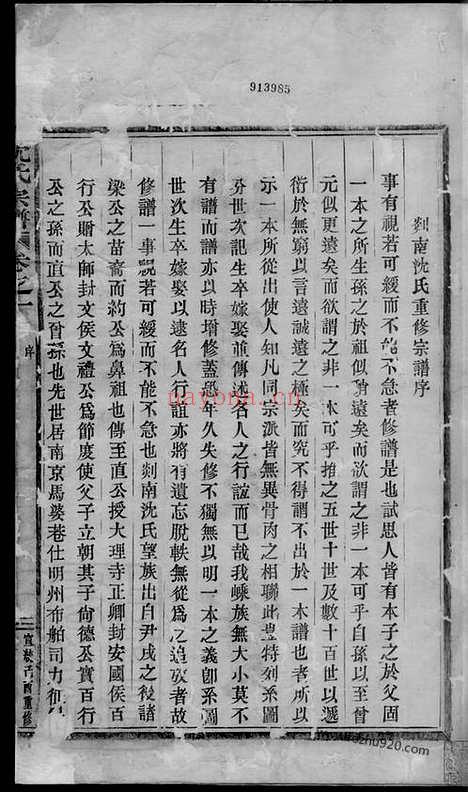 913985
剡南沈氏重修宗譜序
事有視若可緩而不能不急者修譜是也試思人皆有本子之於父固
一本之所生孫之於祖似稍遠矣而欲謂之非一本可乎自孫以至曾
元似更遠矣而欲謂之非一本可乎推之五世十世及數十百世以遞
衍於無窮以言遠誠遠之極矣而究不得謂不出於一本譜也者所以
示一本所從出使人知凡同宗派皆無異骨肉之相聯此豈特列系圖
分世次記生卒嫁娶並傳述名人之行誼而已哉我嵊族無大小莫不
有譜而譜亦以時增修蓋歷年久失修不獨無以明一本之義卽系圖
世次生卒嫁娶以逮名人行誼亦將有遺忘脫軼無從為之追攷者故
修譜一事視若可緩而不能不急也剡南沈氏望族出自尹戌之後諸
梁公之苗裔而約公為鼻祖也傳至直公授大理寺正卿封安國侯百
行公贈太師封文侯文禮公為節度使父子立朝其子尙德公實百行
公之孫而直公之曾孫也先世居南京馬婆巷仕明州布舶司力
沈氏宗譜
卷之一
序
一
宣統己酉重修
nayona.cn